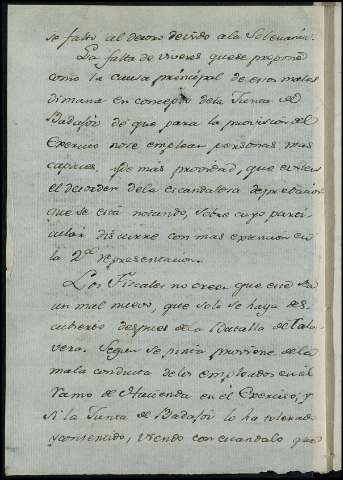 se falto al decoro devido a la Soberania.
La falta de viveres que se propone
como la causa principal de estos males
dimana en concepto de la Junta de
Badajoz de que para la provision del
Exercito no se emplean personas mas
capaces, y de más providad, que eviten
el desorden de la escandalosa depredacion
que se está notando, sobre cuyo parti-
cular discurre con mas extension en
la 2.ª representacion.
Los Fiscales no creen que este sea
un mal nuevo, que solo se haya des-
cubierto despues de la Batalla de Tala-
vera. Segun se pinta proviene de la
mala conducta de los empleados en el
Ramo de Hacienda en el Exercito, y
si la Junta de Badajoz lo ha tolerado
y consentido, viendo con escandalo que